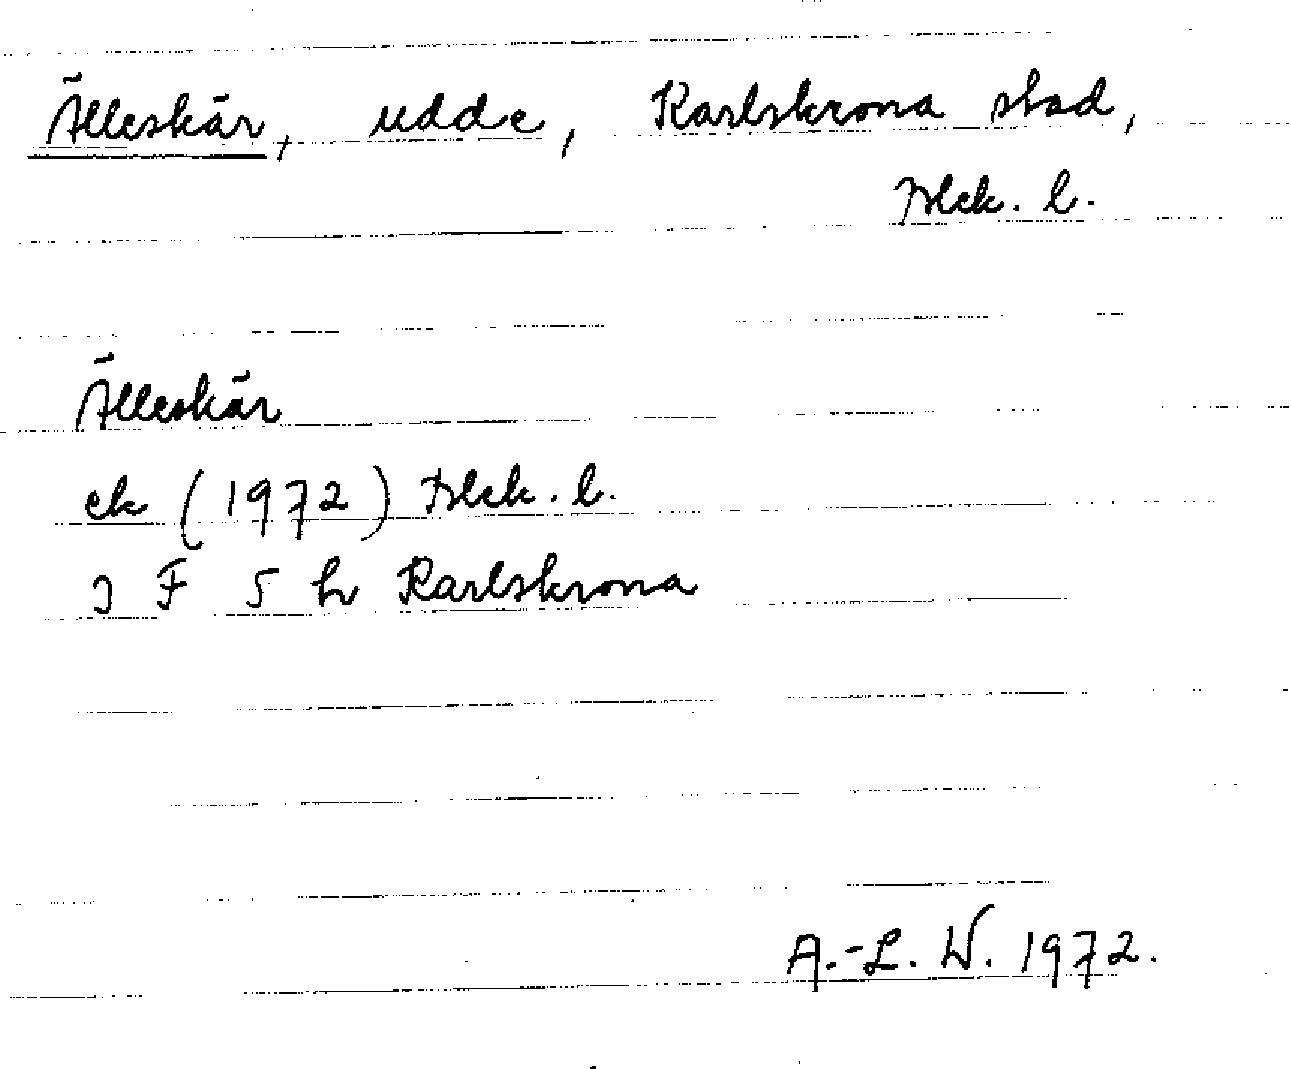 Älleskär, udde, Karlskrona stad,
Blek. l.
Älleskär
ek (1972) Blek. l.
3 F 5 h Karlskrona
A.-L. W. 1972.